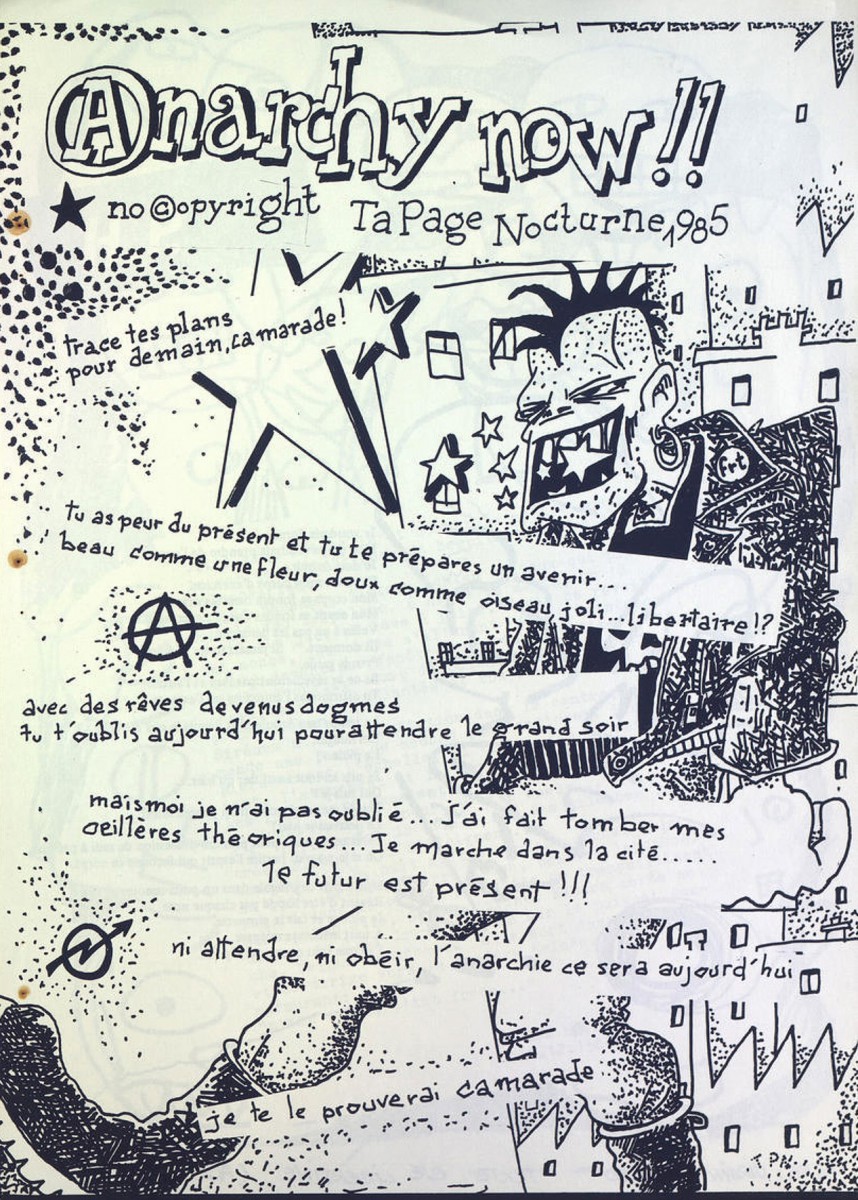 Anarchy now!!
★ no ©opyright TaPage Nocturne 1985
trace tes plans
pour demain, camarade!
tu as peur du présent et tu te prépares un avenir...
beau comme une fleur, doux comme oiseau joli...libertaire!?
avec des rêves devenus dogmes
tu t'oublis aujourd'hui pour attendre le grand soir
mais moi je n'ai pas oublié... J'ai fait tomber mes
oeillères théoriques... Je marche dans la cité.....
le futur est présent!!!
ni attendre, ni obéir, l'anarchie ce sera aujourd'hui
je te le prouverai camarade
TPN